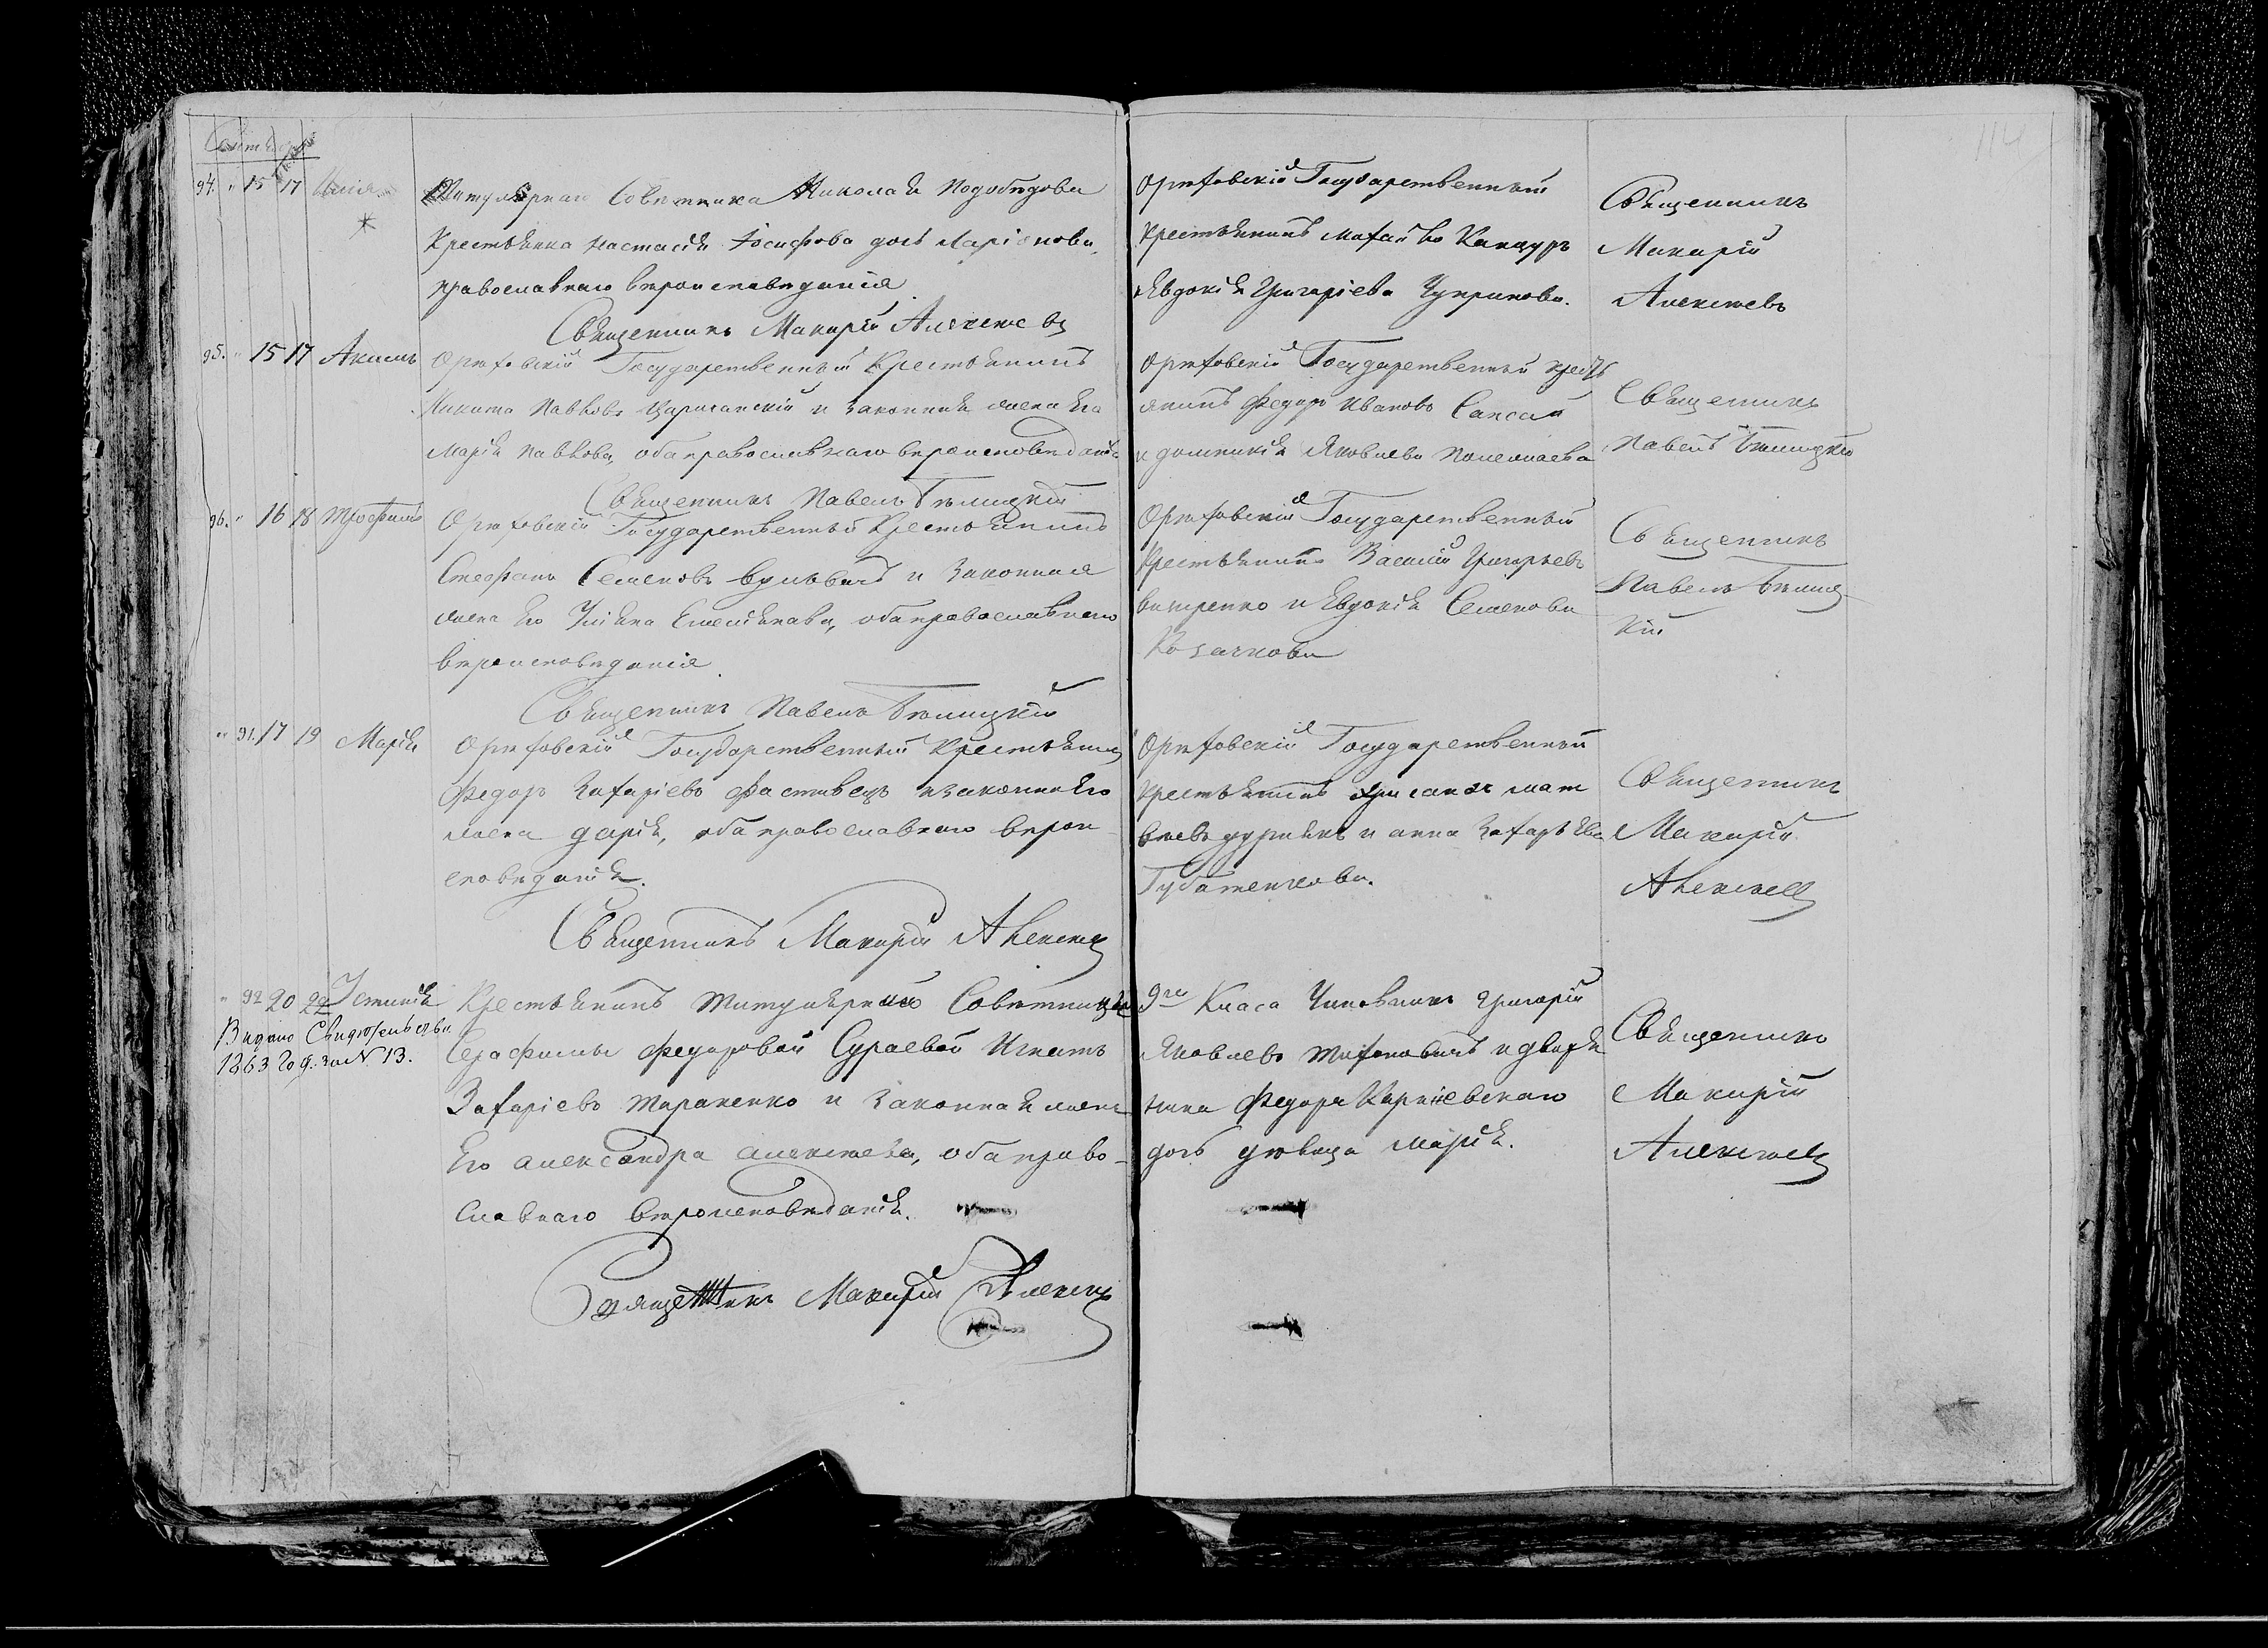 114
Сентябрь
94. " 15 17 Юлія
Титулярнаго Совѣтника Николая Подобѣдова
Крестьянка Настасія Іосифова дочь Ларіонова,
православнаго вѣроисповѣданія
Священникъ Макарій Алексѣевъ
Орѣховскій Государственный
крестьянинъ
Евдокія Григоріева Чуприкова.
Священникъ
Макарій
Алексѣевъ
95. " 15 17 Акимъ
Орѣховскій Государственный Крестьянинъ
Никита Павловъ Царисанскій и законная жена его
Марія Павлова, оба православнаго вѣроисповѣданія
Священникъ Павелъ Бѣлицкій
Орѣховскій Государственный кресть
янинъ Федоръ Ивановъ Саксай
и Яковлева
Священникъ
Павелъ Бѣлицкій
96. " 16 18 Трофимъ
Орѣховскій Государственный Крестьянинъ
Стефанъ Семеновъ и законная
жена его Уліяна Емеліянова, оба православнаго
вѣроисповѣданія.
Священникъ Павелъ Бѣлицкій
Орѣховскій Государственный
Крестьянинъ Василій Григорьевъ
Витренко и Евдокія Семенова
Козачкова
Священникъ
Павелъ Бѣлиц-
кій
" 91. 17 19 Марія
Орѣховскій Государственный Крестьянинъ
Федоръ Захаріевъ Фастивецъ и законна его
жена Дарія, оба православнаго вѣрои-
сповѣданія.
Священникъ Макарій Алексѣевъ
Орѣховскій Государственный
Крестьянинъ Хрисанфъ Мат
вѣевъ и Анна Захарьева
Губатенкова.
Священникъ
Макарій
Алексѣевъ
" 92 20 22 Устинія
Видано Свидѣтельство
1863 год. за № 13.
Крестьянинъ Титулярной Совѣтницы
Серафимы Федоровой Сураевой Игнатъ
Захаріевъ Тараненко и законная жена
Его Александра Алексѣева, оба право-
славнаго вѣроисповѣданія.
Священникъ Макарій Алексѣевъ
9го Класа Чиновникъ Григорій
Яковлевъ и дворя
нина Федора
дочь дѣвица Марія.
Священникъ
Макарій
Алексѣевъ